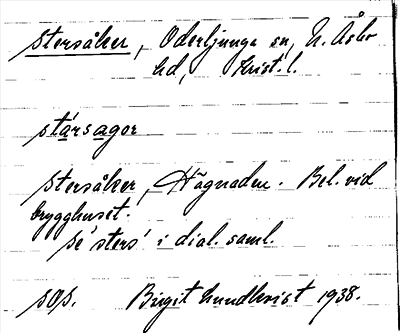 Stersåker, Oderljunga sn, N. Åsbo
hd, Krist. l.
stársagor
Stersåker, Hägnaden. Bel. vid
brygghuset.
se 'sters' i dial. saml.
sOs. Birgit Lundkvist 1938.